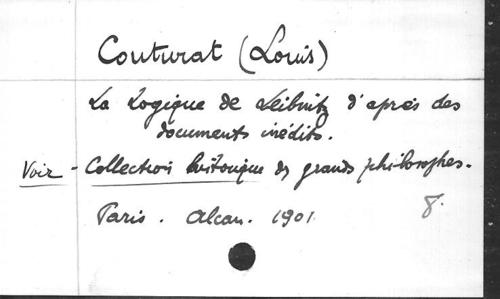 Couturat (Louis)
La Logique de Leibnitz d'après des
documents inédits.
Voir - Collection historique des grands philosophes.
Paris. Alcan. 1901. 8.